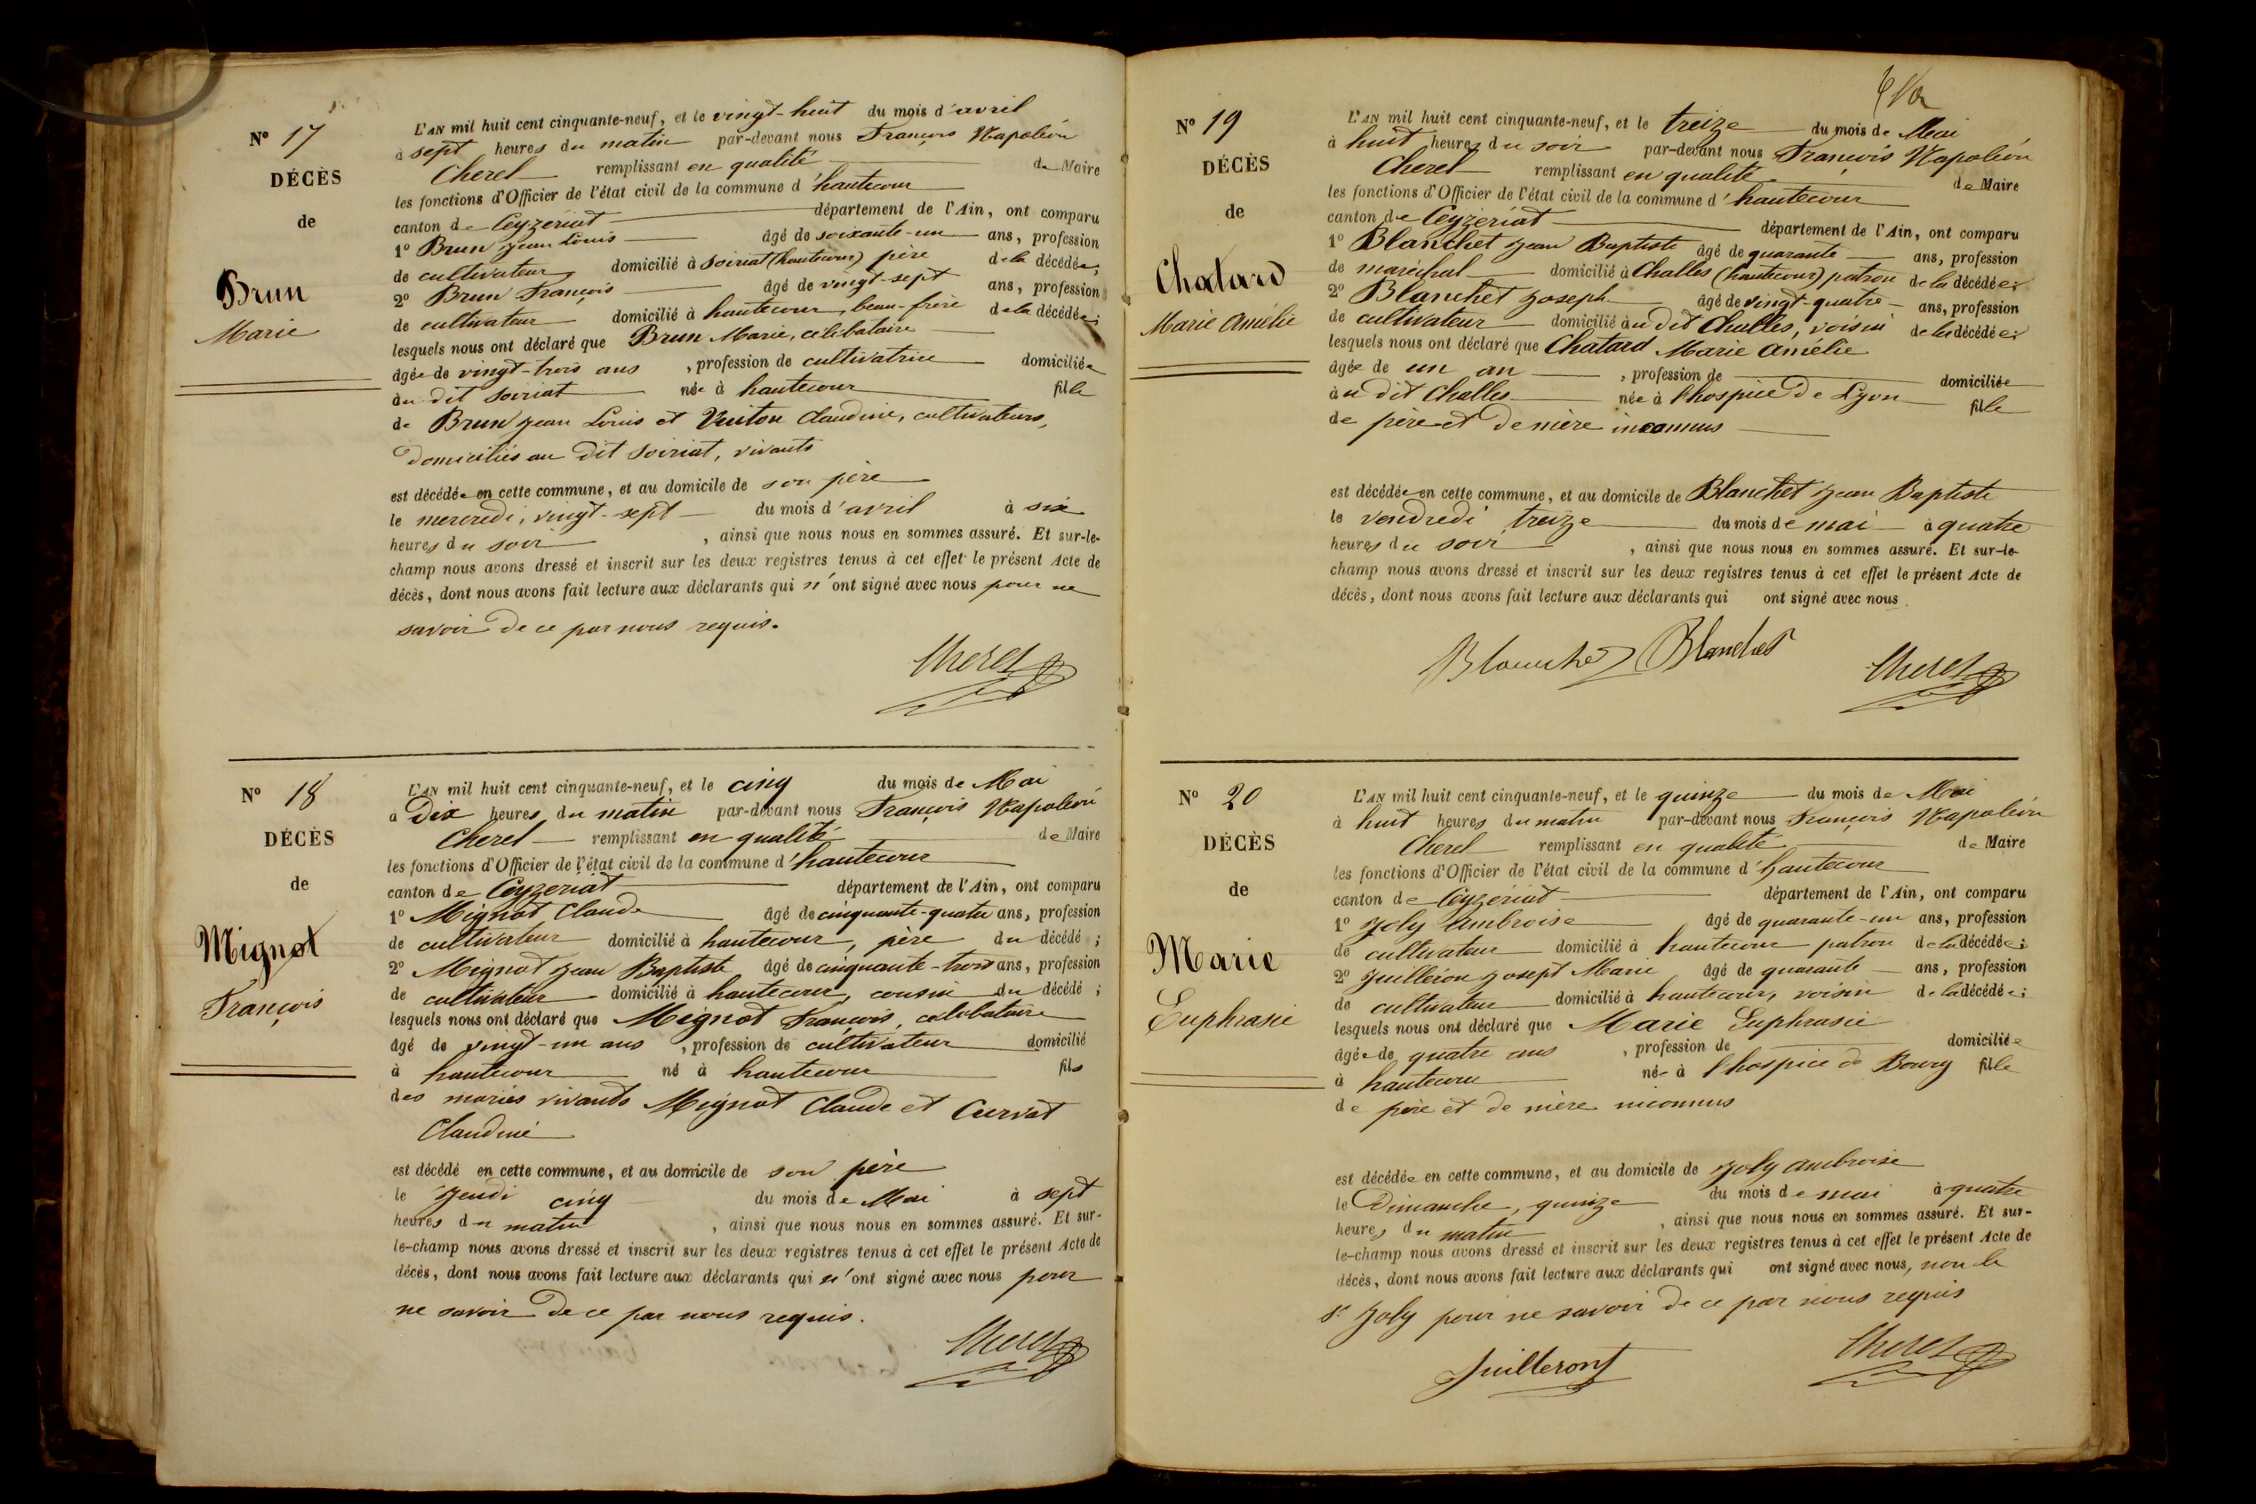 N° 17
DÉCÈS
de
Brun
Marie
L'AN mil huit cent cinquante-neuf, et le vingt-huit du mois d'avril
à sept heures du matin par-devant nous François Napoléon
Cherel remplissant en qualité de Maire
les fonctions d'Officier de l'état civil de la commune d'hautecour
canton de Ceyzériat département de l'Ain, ont comparu
1° Brun Jean Louis âgé de soixante-un ans, profession
de cultivateur domicilié à Soiriat (hautecour) père de la décédée;
2° Brun François âgé de vingt-sept ans, profession
de cultivateur domicilié à hautecour, beau-frère de la décédée;
lesquels nous ont déclaré que Brun Marie, célibataire
âgée de vingt-trois ans, profession de cultivatrice domiciliée
au dit Soiriat née à hautecour fille
de Brun Jean Louis et Vuiton Claudine, cultivateurs,
domiciliés au dit Soiriat, vivants
est décédée en cette commune, et au domicile de son père
le mercredi, vingt-sept du mois d'avril à six
heures du soir, ainsi que nous nous en sommes assuré. Et sur-le-
champ nous avons dressé et inscrit sur les deux registres tenus à cet effet le présent Acte de
décès, dont nous avons fait lecture aux déclarants qui n'ont signé avec nous pour ne
savoir de ce par nous requis.
Cherel
N° 18
DÉCÈS
de
Mignot
François
L'AN mil huit cent cinquante-neuf, et le cinq du mois de Mai
à Dix heures du matin par-devant nous François Napoléon
Cherel remplissant en qualité de Maire
les fonctions d'Officier de l'état civil de la commune d'hautecour
canton de Ceyzeriat département de l'Ain, ont comparu
1° Mignot Claude âgé de cinquante-quatre ans, profession
de cultivateur domicilié à hautecour, père du décédé;
2° Mignot Jean Baptiste âgé de cinquante-trois ans, profession
de cultivateur domicilié à hautecour, cousin du décédé;
lesquels nous ont déclaré que Mignot François, célibataire
âgé de vingt-un ans, profession de cultivateur domicilié
à hautecour né à hautecour fils
des mariés vivants Mignot Claude et Curvat
Claudine
est décédé en cette commune, et au domicile de son père
le Jeudi cinq du mois de Mai à sept
heures du matin, ainsi que nous nous en sommes assuré. Et sur-
le-champ nous avons dressé et inscrit sur les deux registres tenus à cet effet le présent Acte de
décès, dont nous avons fait lecture aux déclarants qui n'ont signé avec nous pour
ne savoir de ce par nous requis.
Cherel
N° 19
DÉCÈS
de
Chatard
Marie Amélie
L'AN mil huit cent cinquante-neuf, et le treize du mois de Mai
à huit heures du soir par-devant nous François Napoléon
Cherel remplissant en qualité de Maire
les fonctions d'Officier de l'état civil de la commune d'hautecour
canton de Ceyzériat département de l'Ain, ont comparu
1° Blanchet Jean Baptiste âgé de quarante ans, profession
de maréchal domicilié à Challes (hautecour) patron de la décédée;
2° Blanchet Joseph âgé de vingt-quatre ans, profession
de cultivateur domicilié au dit Challes, voisin de la décédée;
lesquels nous ont déclaré que Chatard Marie Amélie
âgée de un an, profession de domiciliée
au dit Challes née à l'hospice de Lyon fille
de père et de mère inconnus
est décédée en cette commune, et au domicile de Blanchet Jean Baptiste
le vendredi treize du mois de mai à quatre
heures du soir, ainsi que nous nous en sommes assuré. Et sur-le-
champ nous avons dressé et inscrit sur les deux registres tenus à cet effet le présent Acte de
décès, dont nous avons fait lecture aux déclarants qui ont signé avec nous.
Blanchet Blanchet Cherel
N° 20
DÉCÈS
de
Marie
Euphrasie
L'AN mil huit cent cinquante-neuf, et le quinze du mois de Mai
à huit heures du matin par-devant nous François Napoléon
Cherel remplissant en qualité de Maire
les fonctions d'Officier de l'état civil de la commune d'hautecour
canton de Ceyzériat département de l'Ain, ont comparu
1° Joly Ambroise âgé de quarante-un ans, profession
de cultivateur domicilié à hautecour patron de la décédée;
2° Juilleron Josept Marie âgé de quarante ans, profession
de cultivateur domicilié à hautecour, voisin de la décédée;
lesquels nous ont déclaré que Marie Euphrasie
âgée de quatre ans, profession de domiciliée
à hautecour née à l'hospice de Bourg fille
de père et de mère inconnus
est décédée en cette commune, et au domicile de Joly Ambroise
le Dimanche, quinze du mois de mai à quatre
heures du matin, ainsi que nous nous en sommes assuré. Et sur-
le-champ nous avons dressé et inscrit sur les deux registres tenus à cet effet le présent Acte de
décès, dont nous avons fait lecture aux déclarants qui ont signé avec nous, non le
sr Joly pour ne savoir de ce par nous requis
Juilleront Cherel